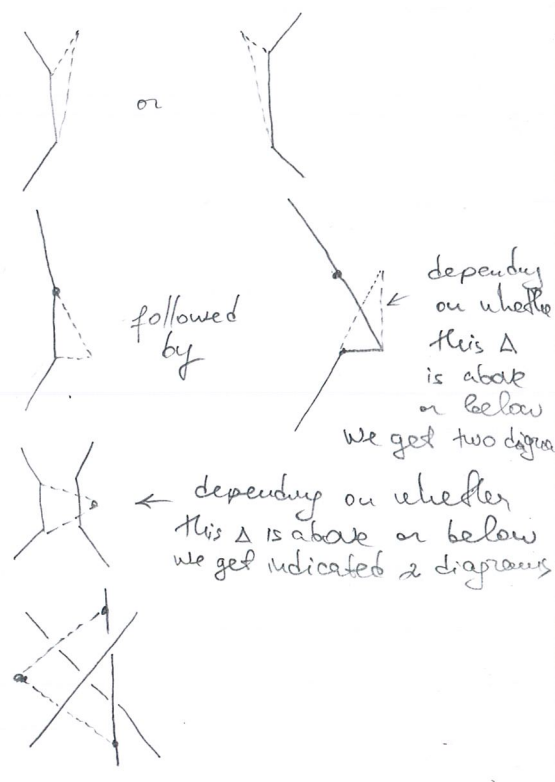 or
followed
by
depending
on whethe
this Δ
is above
or below
we get two digra
← depending on whether
this Δ is above or below
we get indicated 2 diagrams